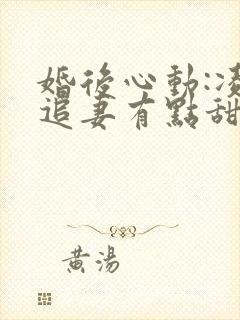 婚後心動:凌
追妻有點甜
黃湯